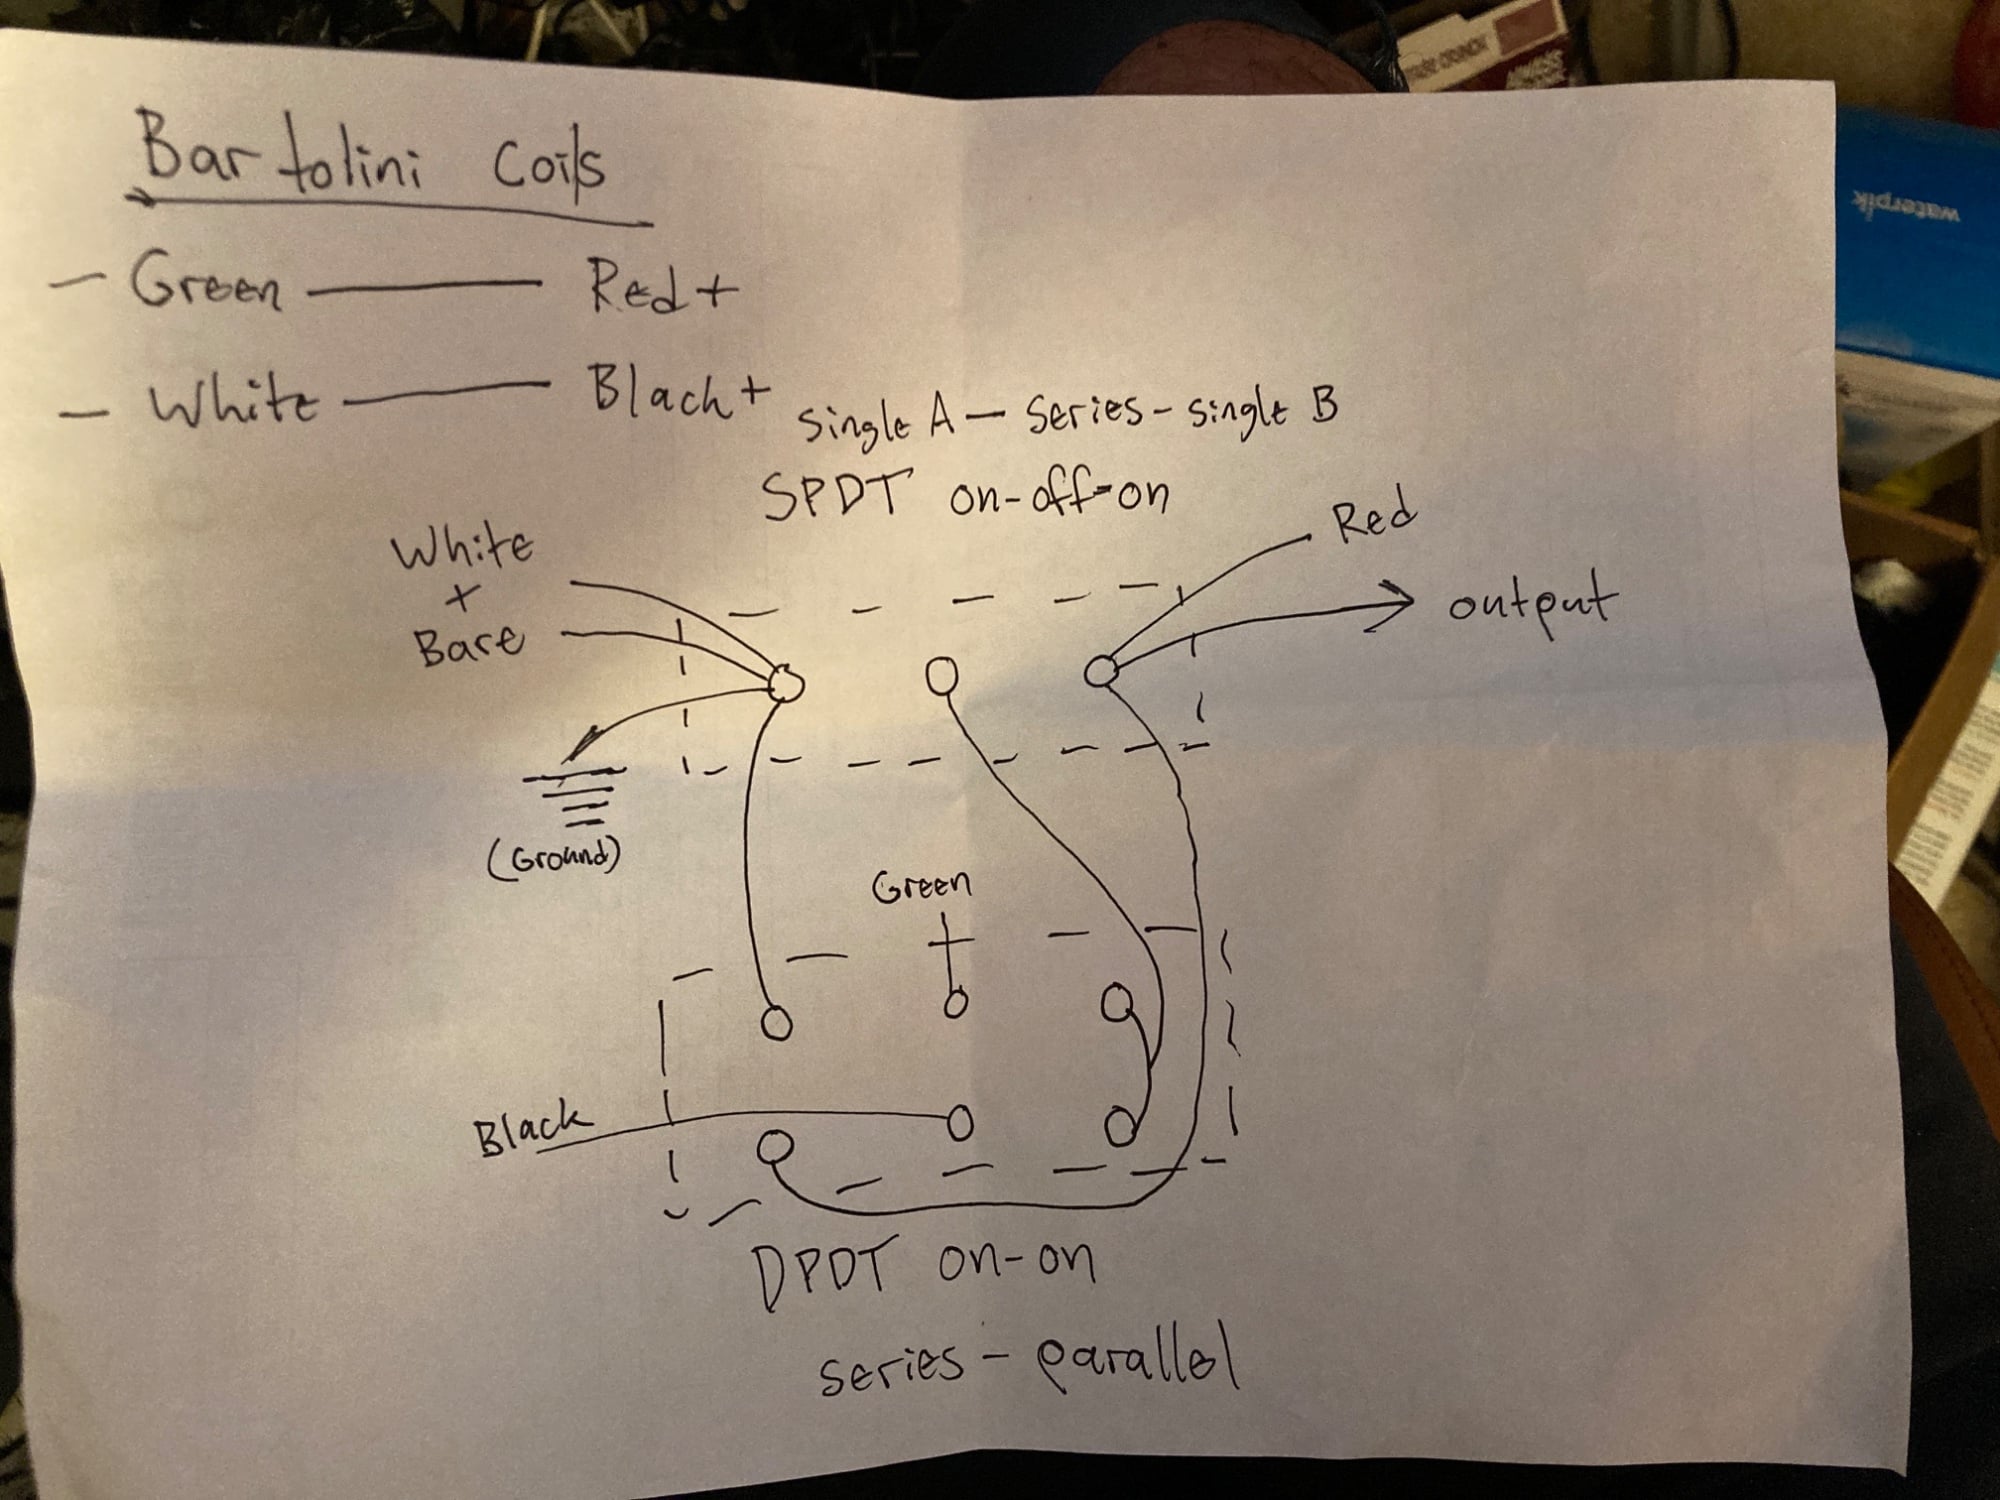 Bartolini Coils
- Green — Red +
- White — Black +
Single A - Series - Single B
SPDT on-off-on
White
+
Bare
Red
output
(Ground)
Green
Black
DPDT on-on
series - parallel
waterpik